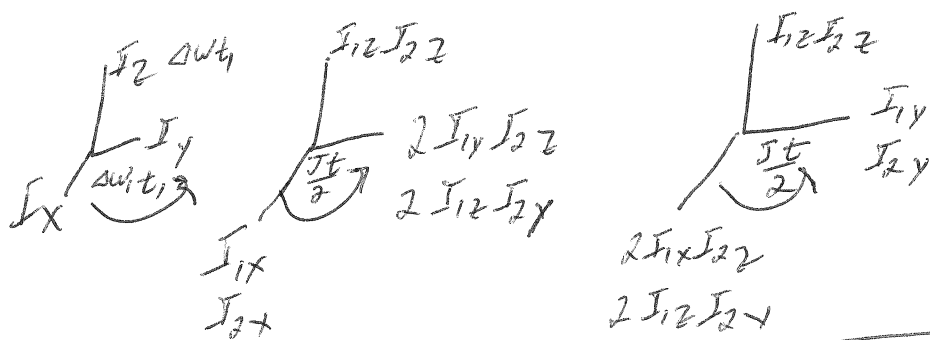 I_z Δωt_1
I_y
Δω_1t_1
I_x
I_{1z}I_{2z}
2I_{1y}I_{2z}
2I_{1z}I_{2y}
Jt/2
I_{1x}
I_{2x}
I_{1z}I_{2z}
I_{1y}
I_{2y}
Jt/2
2I_{1x}I_{2z}
2I_{1z}I_{2x}